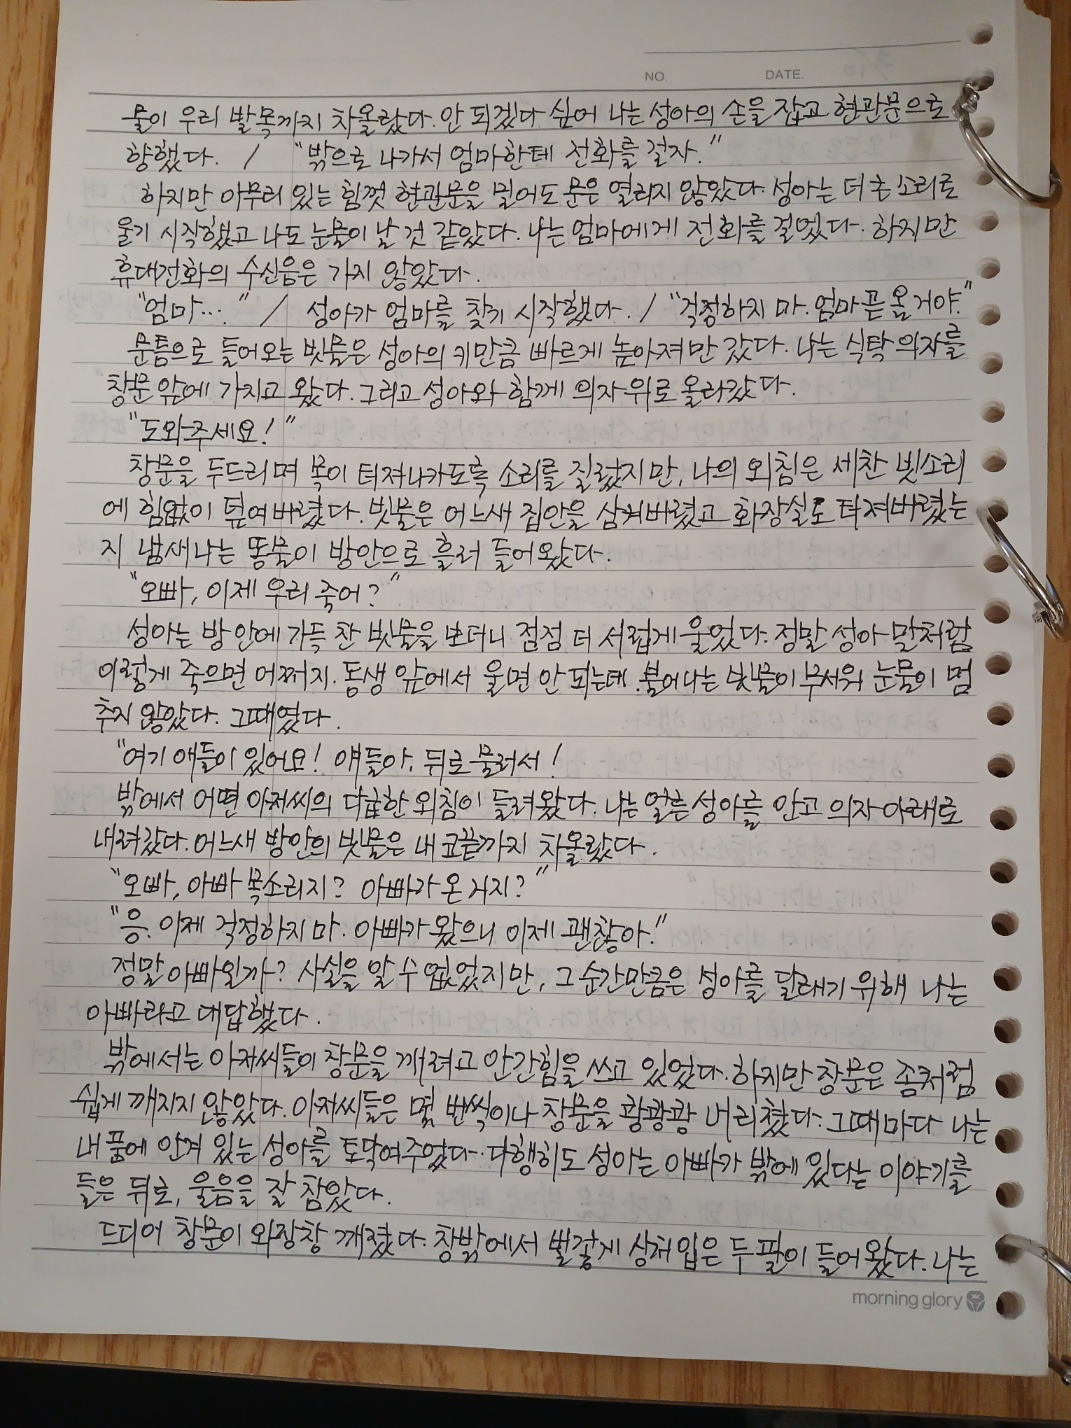 NO. DATE.
물이 우리 발목까지 차올랐다. 안 되겠다 싶어 나는 성아의 손을 잡고 현관문으로
향했다. / "밖으로 나가서 엄마한테 전화를 걸자."
하지만 아무리 있는 힘껏 현관문을 밀어도 문은 열리지 않았다. 성아는 더 큰 소리로
울기 시작했고 나도 눈물이 날 것 같았다. 나는 엄마에게 전화를 걸었다. 하지만
휴대전화의 수신음은 가지 않았다.
"엄마…" / 성아가 엄마를 찾기 시작했다. / "걱정하지 마. 엄마 곧 올거야."
문틈으로 들어오는 빗물은 성아의 키만큼 빠르게 높아져만 갔다. 나는 식탁 의자를
창문 앞에 가지고 왔다. 그리고 성아와 함께 의자 위로 올라갔다.
"도와주세요!"
창문을 두드리며 목이 터져나가도록 소리를 질렀지만, 나의 외침은 세찬 빗소리
에 힘없이 덮여버렸다. 빗물은 어느새 집안을 삼켜버렸고 화장실도 터져버렸는
지 냄새나는 똥물이 방안으로 흘러 들어왔다.
"오빠, 이제 우리 죽어?"
성아는 방 안에 가득 찬 빗물을 보더니 점점 더 서럽게 울었다. 정말 성아 말처럼
이렇게 죽으면 어쩌지. 동생 앞에서 울면 안 되는데. 불어나는 빗물이 무서워 눈물이 멈
추지 않았다. 그때였다.
"여기 애들이 있어요! 얘들아, 뒤로 물러서!
밖에서 어떤 아저씨의 다급한 외침이 들려왔다. 나는 얼른 성아를 안고 의자 아래로
내려갔다. 어느새 방안의 빗물은 내 코끝까지 차올랐다.
"오빠, 아빠 목소리지? 아빠가 온 거지?"
"응. 이제 걱정하지 마. 아빠가 왔으니 이제 괜찮아."
정말 아빠일까? 사실을 알 수 없었지만, 그 순간만큼은 성아를 달래기 위해 나는
아빠라고 대답했다.
밖에서는 아저씨들이 창문을 깨려고 안간힘을 쓰고 있었다. 하지만 창문은 좀처럼
쉽게 깨지지 않았다. 아저씨들은 몇 번씩이나 창문을 쾅쾅쾅 내리쳤다. 그때마다 나는
내 품에 안겨 있는 성아를 토닥여주었다. 다행히도 성아는 아빠가 밖에 있다는 이야기를
들은 뒤로, 울음을 잘 참았다.
드디어 창문이 와장창 깨졌다. 창밖에서 벌겋게 상처 입은 두 팔이 들어왔다. 나는
morning glory